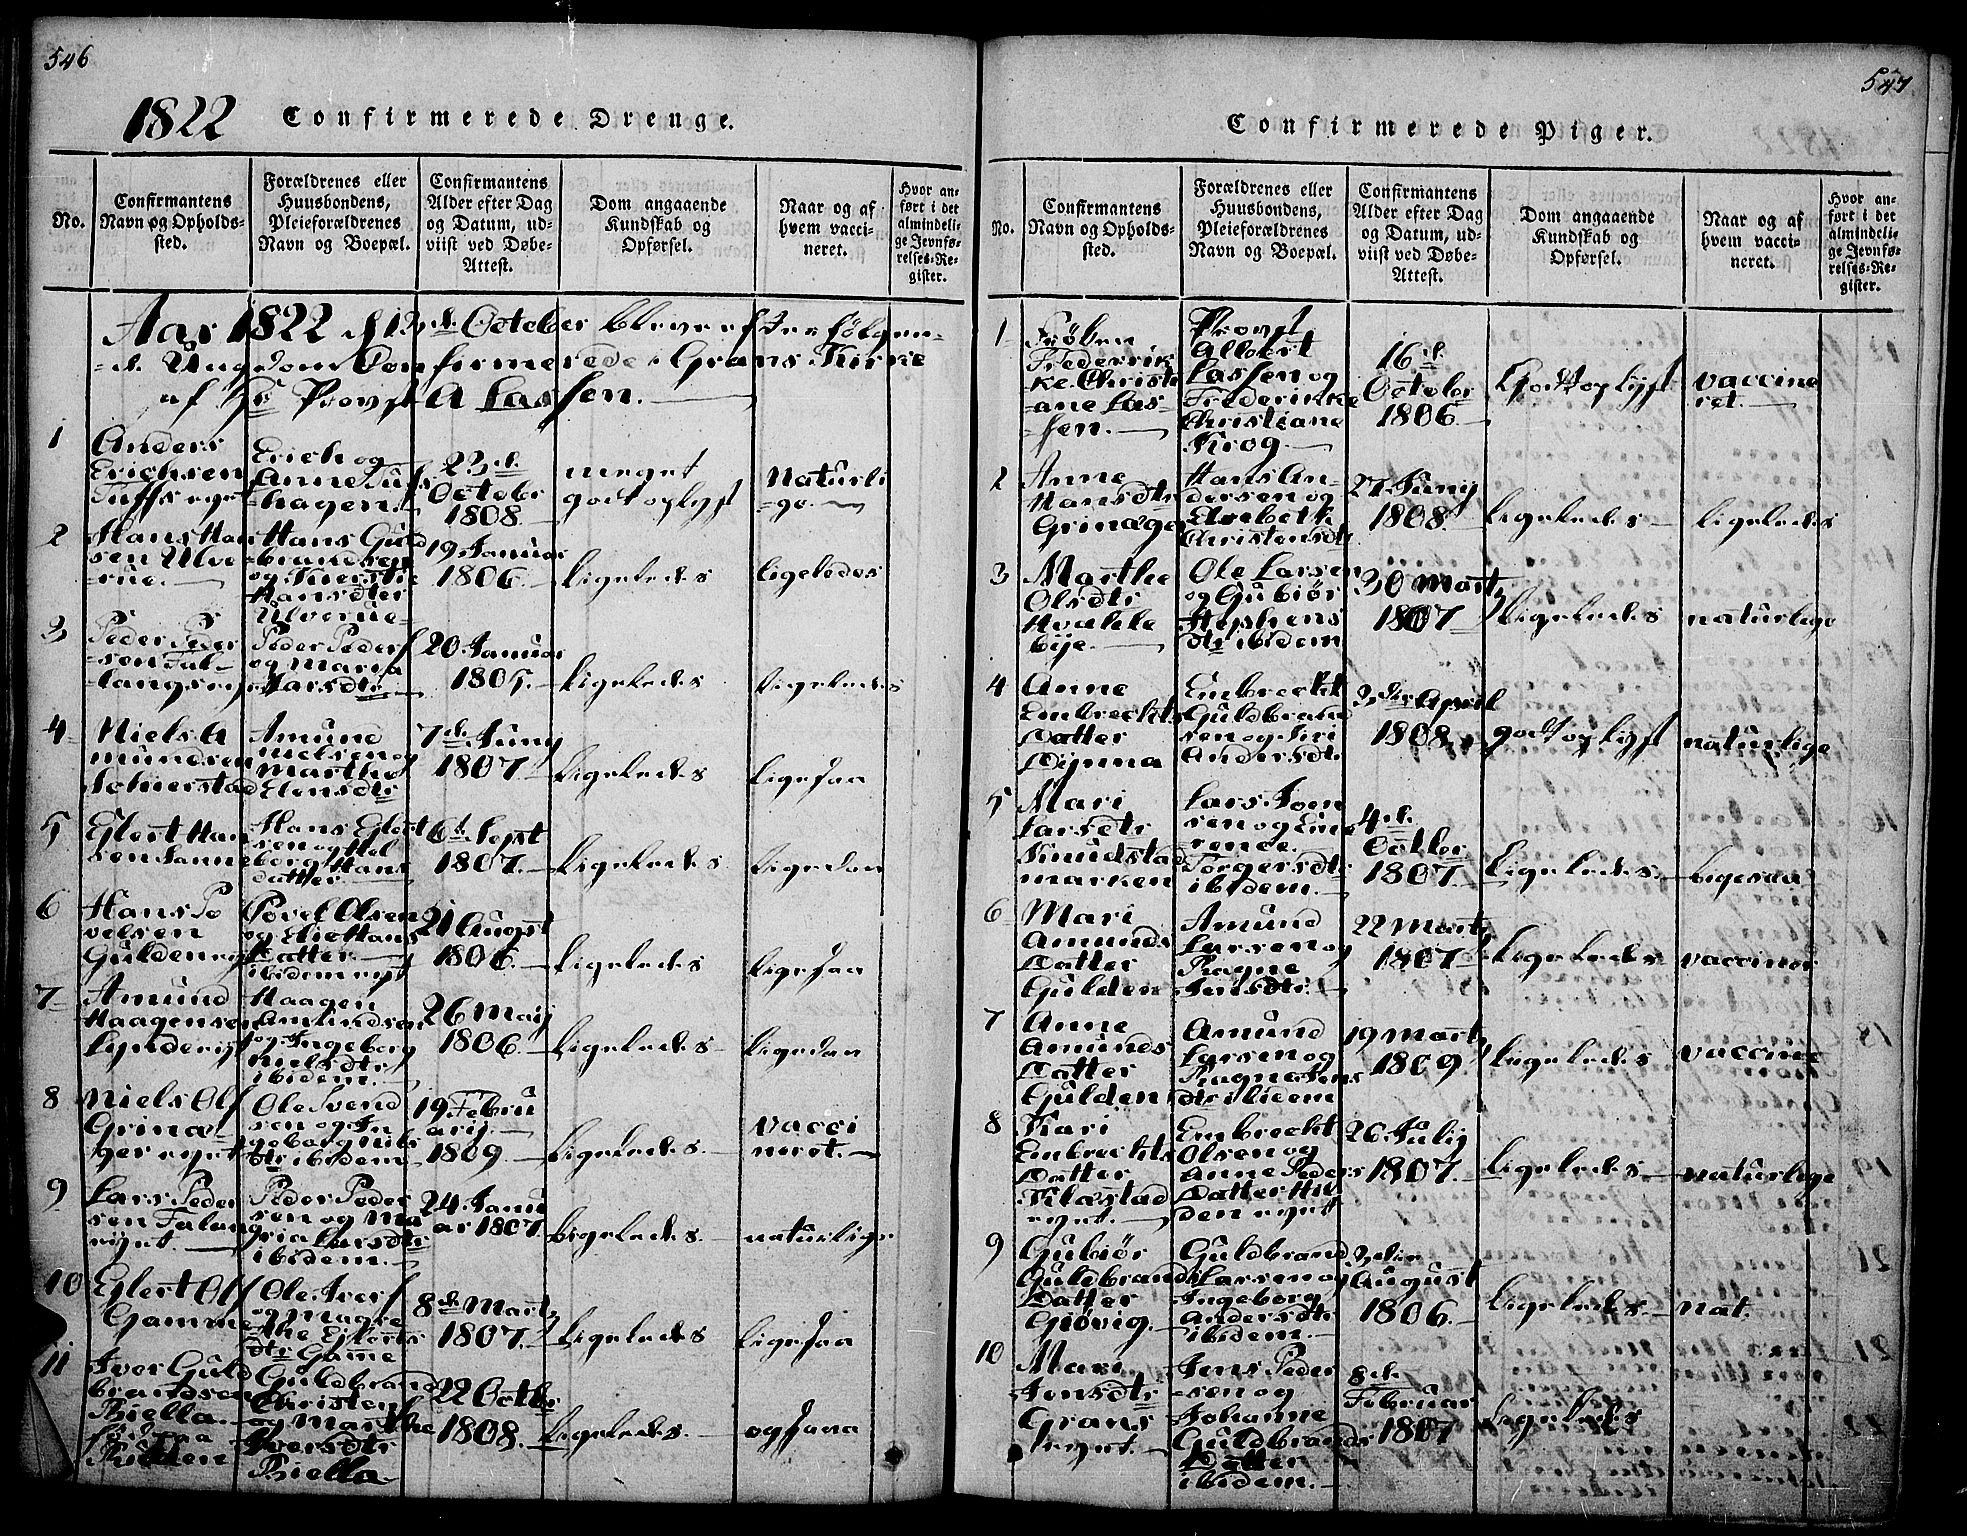 546
1822 Confirmerede Drenge.
No.
Confirmantens
Navn og Opholds-
sted.
Forældrenes eller
Huusbondens,
Pleieforældrenes
Navn og Boepæl.
Confirmantens
Alder efter Dag
og Datum, ud-
viist ved Døbe-
Attest.
Dom angaaende
Kundskab og
Opførsel.
Naar og af
hvem vacci-
neret.
Hvor an-
ført i det
almindeli-
ge Jevnfø-
relses-Re-
gister.
Aar 1822 d 13de October bleve efter følgen-
de Ungdom Confirmerede i Grans Kirke
af Hr Provst A Lassen.
1
Anders
Erichsen
Erich og
Anne
hagen.
23de
Octobr
1808
meget
godt oplyst
Naturli
-ge.
2
Hans Han
sen Ulve
-rue.
Hans Guld
brandsen
og Kierstie
Hansdter
Ulverue
19 Januar
1806.
ligeledes
ligeledes
3
Peder Peder
-sen Fal-
-langs
Peder Peders
og Maria
Larsdtr
20 Januar
1805.
ligeledes
ligeledes
4
Niels A
mundsen
Amund
Nielsen og
Marthe
7de Juny
1807.
ligeledes
ligesaa
5
Eglert Han
sen Sanne
Hans Eglert
sen og
borg Hans
datter
6te Sept
1807.
ligeledes
ligesaa
6
Hans Po
velsen
Gulden
Povel Olsen
og Elie Hans
Datter
ibidem
21 August
1806.
ligeledes
ligesaa
7
Amund
Haagensen
Haagen
Amundsen
og Ingeborg
Nielsdtr
ibidem.
26 Maij
1806.
ligeledes
ligesaa
8
Niels Ols
Grina-
ger eynt
Ole Svend
sen og In
geborg Nils
dtr ibidem
19 Febru
arij.
1809
ligeledes.
vacci
neret.
9
Lars Peder
sen Falang
eynt.
Peder Peder
sen og Ma
ria Larsdtr
ibidem.
24 Janu
ar 1807.
ligeledes.
naturlige
10
Eglert Ols
Gamme
Ole Ivers
og Magre
the Eglerts
dtr Game
8de Marts
1807.
ligeledes
ligesaa
11
Iver Guld
brandsen
Biella.
Guldbrand
Christens
og Marthe
Iversdtr
Biella
22 Octbr
1808.
ligeledes.
547
Confirmerede Piger.
No.
Confirmantens
Navn og Opholds-
sted.
Forældrenes eller
Huusbondens,
Pleieforældrenes
Navn og Boepæl.
Confirmantens
Alder efter Dag
og Datum, ud-
viist ved Døbe-
Attest.
Dom angaaende
Kundskab og
Opførsel.
Naar og af
hvem vacci-
neret.
Hvor an-
ført i det
almindeli-
ge Jevnfø-
relses-Re-
gister.
1
Frøken
Frederik
ke Christi
ane Las-
-sen.
Provst
Albert
Lassen og
Frederikke
Christiane
Krog
16de
October
1806.
Godt oplyst
vaccine
ret.
2
Anne
Hansdtr
Grinager
Hans An-
dersen og
Elsebeth
Christensdt
27 Junij
1808
ligeledes
ligeledes
3
Marthe
Olsdtr
Hvalebye.
Ole Larsen
og Gubiør
Stephens
dtr ibidem
30 Marts
1807
ligeledes
naturlige
4
Anne
Embrechts
Datter
Dynna
Embrecht
Guldbrand
sen og Siri
Andersdtr
3die April
1808.
godt oplyst
naturlige
5
Mari
Larsdtr
Knudstad
marken
Lars Iven
sen og
Torgersdtr
ibidem.
4de
Octbr
1807.
ligeledes.
ligesaa
6
Mari
Amunds
Datter
Gulden
Amund
Larsen og
Ragne
Jensdtr.
22 Marts
1807
ligeledes
vacciner
7
Anne
Amunds
Datter
Gulden
Amund
Larsen og
Ragne Jens
dtr ibidem
19 Marts
1809
ligeledes
vaccine
8
Kari
Embrechts
Datter
eynt.
Embrecht
Olsen og
Anne Peders
Datter
eynt
26 Julij
1807.
ligeledes
naturlige
9
Gubiør
Guldbrands
Datter
Giøvig.
Guldbrand
Larsen og
Ingeborg
Andersdtr
ibidem.
3die
August
1806.
ligeledes
nat.
10
Mari
Jensdtr
Grans
eynt.
Jens Peder
-sen og
Johanne
Guldbrands
Datter
ibidem.
8de
Februar
1807
ligeledes